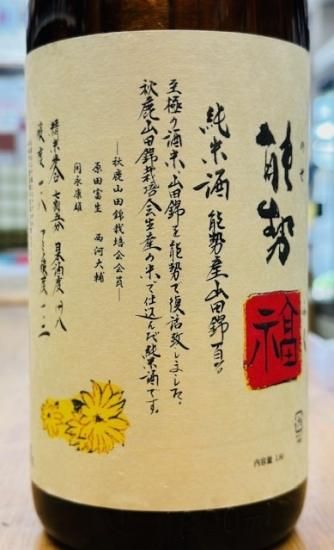 能勢
福
純米酒 能勢産山田錦
至極の酒米、山田錦を能勢で復活致しました。
秋鹿山田錦栽培会生産の米で仕込んだ純米酒です。
―秋鹿山田錦栽培会会員―
原田富生 西河大輔
精米歩合 七割 日本酒度
酸度 一・八 アミノ酸度 一・二
内容量 1.8ℓ